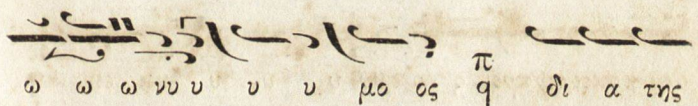 ω ω ω νυ υ υ υ μο ος π q δι α της